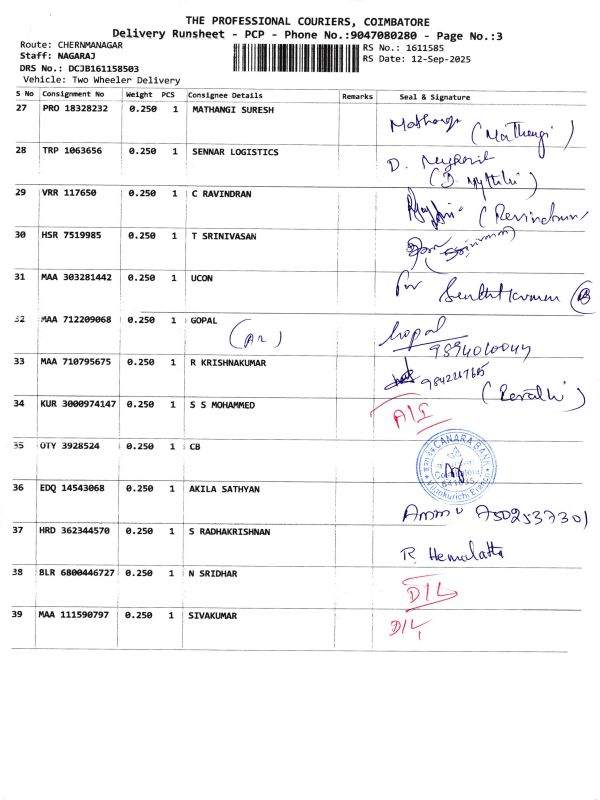 THE PROFESSIONAL COURIERS, COIMBATORE
Delivery Runsheet - PCP - Phone No.:9047080280 - Page No.:3
Route: CHERNMANAGAR
Staff: NAGARAJ
DRS No.: DCJB161158503
Vehicle: Two Wheeler Delivery
RS No.: 1611585
RS Date: 12-Sep-2025
S No Consignment No Weight PCS Consignee Details Remarks Seal & Signature
27 PRO 18328232 0.250 1 MATHANGI SURESH
(Mathangi)
28 TRP 1063656 0.250 1 SENNAR LOGISTICS
D.
29 VRR 117650 0.250 1 C RAVINDRAN
30 HSR 7519985 0.250 1 T SRINIVASAN
31 MAA 303281442 0.250 1 UCON
for
32 MAA 712209068 0.250 1 GOPAL Gopal
9894010044
33 MAA 710795675 0.250 1 R KRISHNAKUMAR
(Revathi)
34 KUR 3000974147 0.250 1 S S MOHAMMED
35 OTY 3928524 0.250 1 CB CANARA BANK
Vilankurichi Branch
36 EDQ 14543068 0.250 1 AKILA SATHYAN
Ammu 7502537301
37 HRD 362344570 0.250 1 S RADHAKRISHNAN
R. Hemalatha
38 BLR 6800446727 0.250 1 N SRIDHAR D/L
39 MAA 111590797 0.250 1 SIVAKUMAR D/L